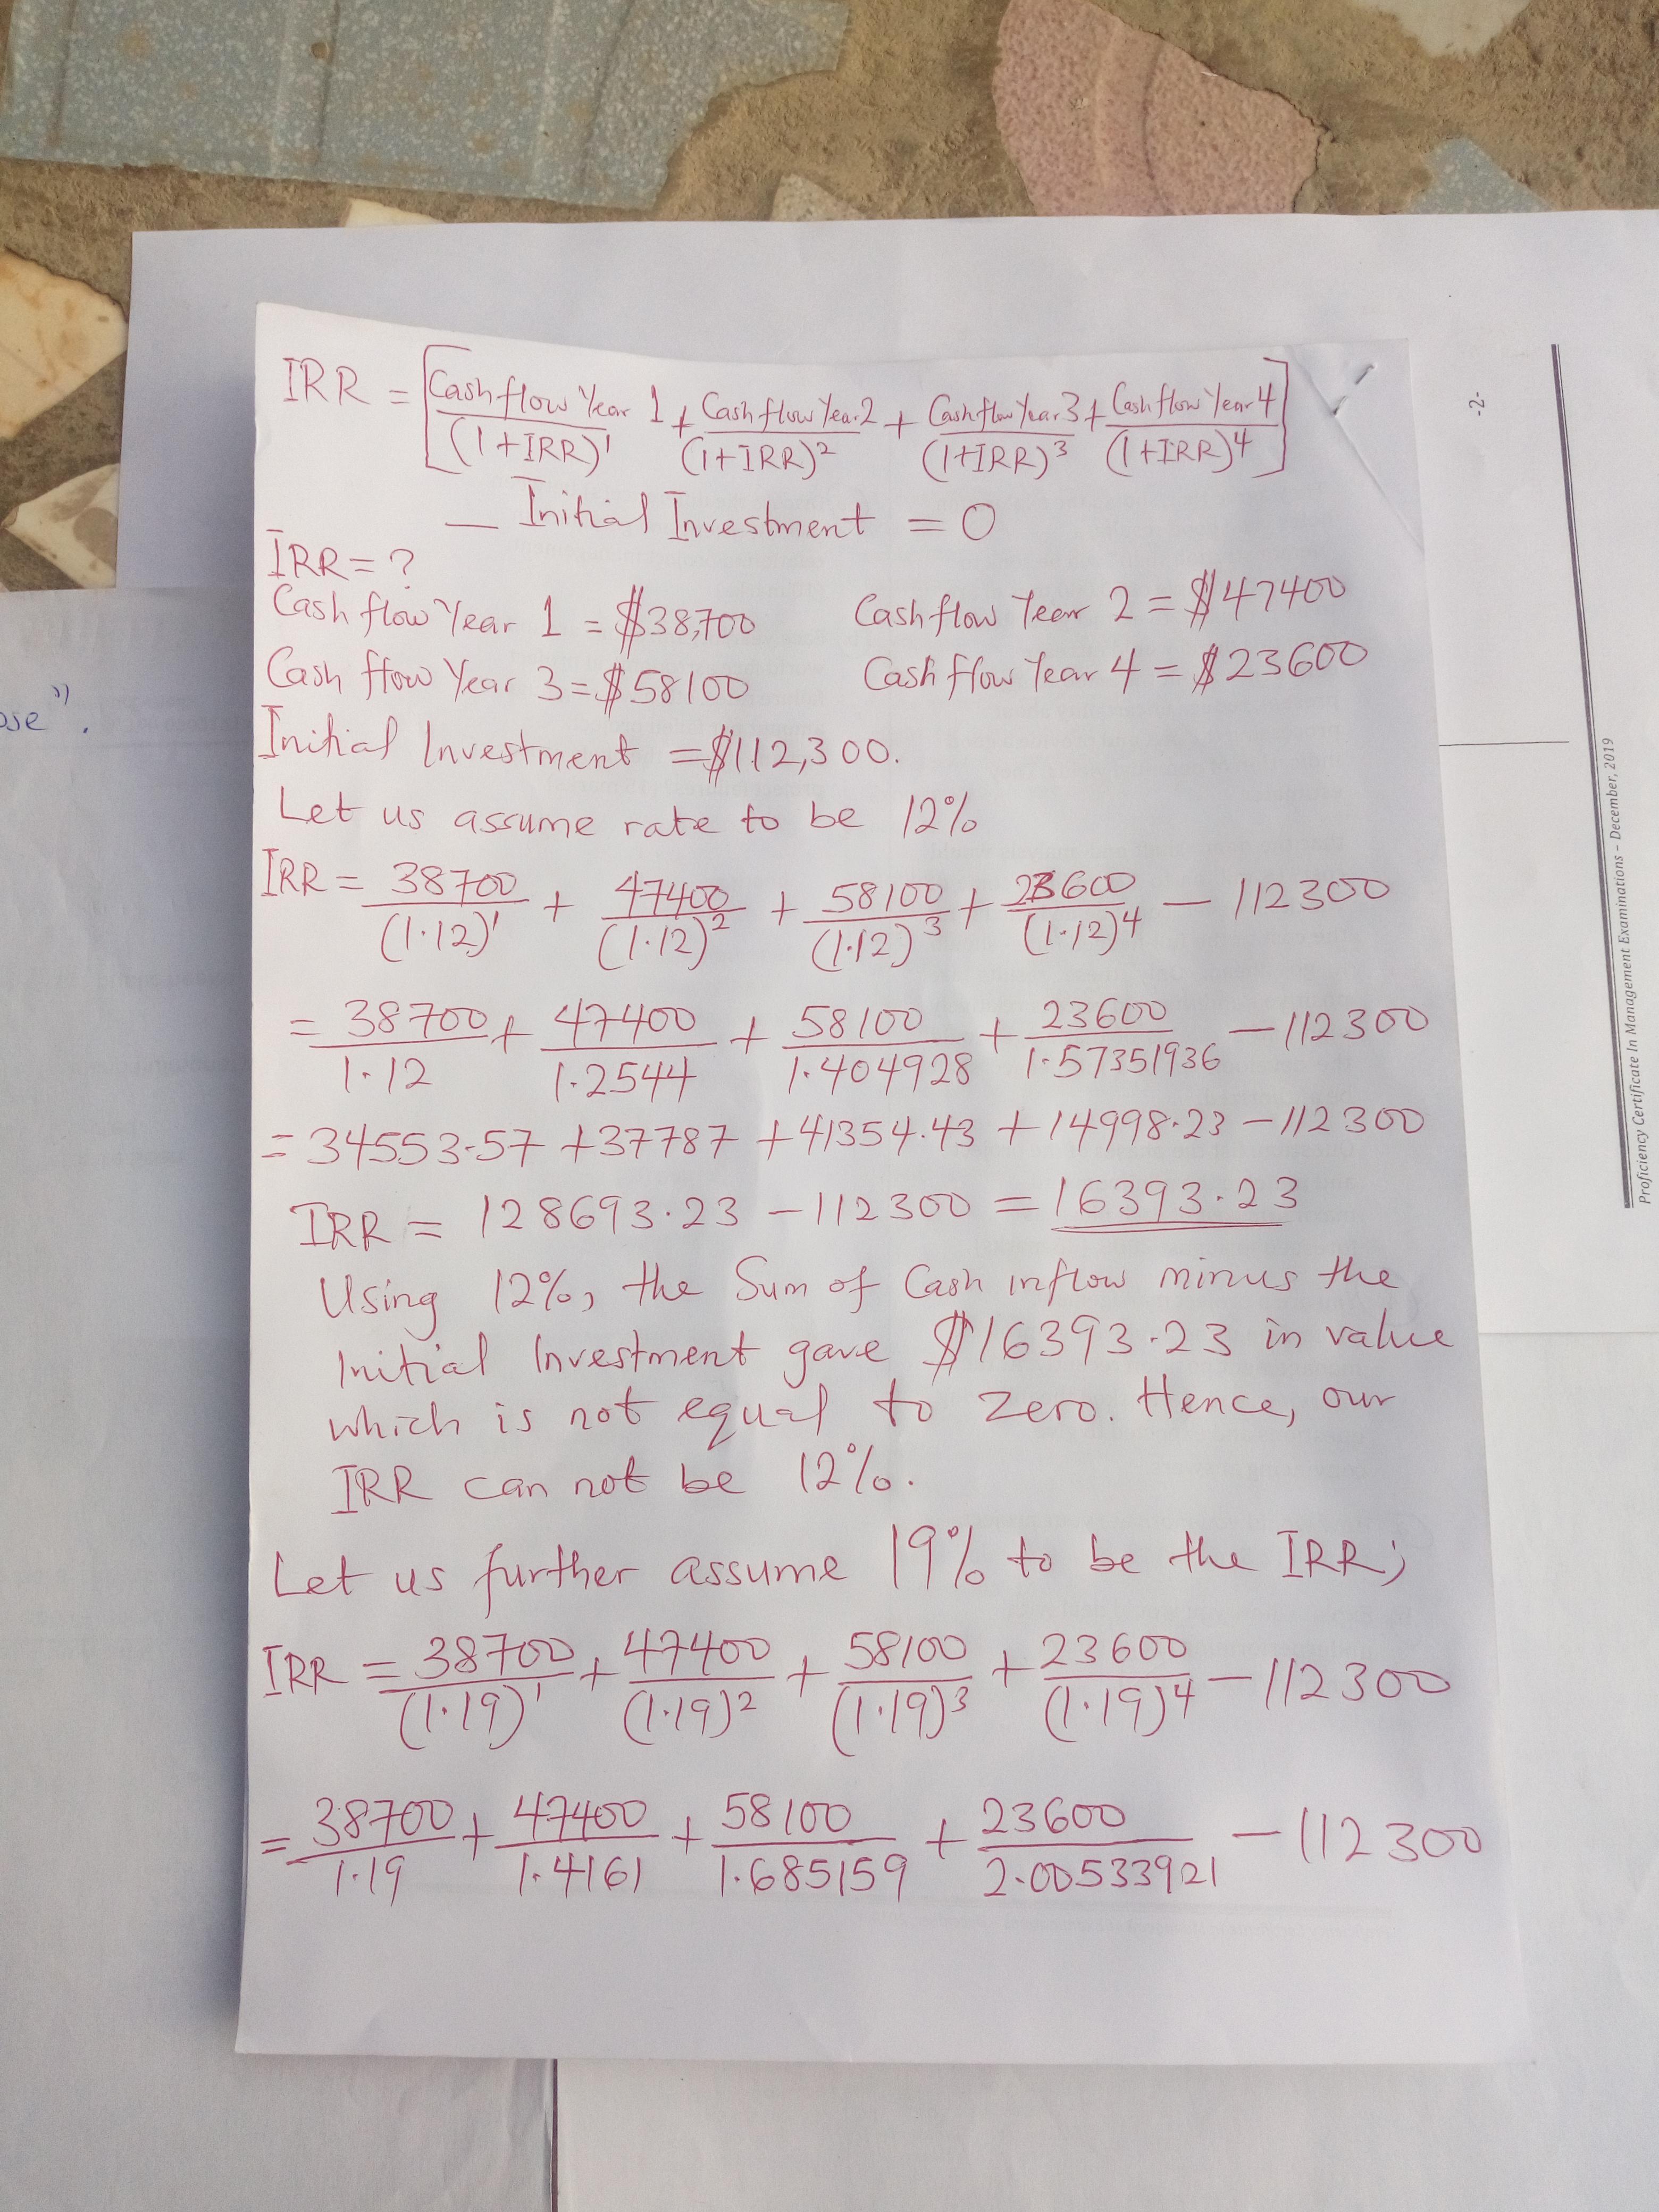 IRR = [Cash flow Year 1/(1+IRR)¹ + Cash flow Year 2/(1+IRR)² + Cash flow Year 3/(1+IRR)³ + Cash flow Year 4/(1+IRR)⁴]
— Initial Investment = 0
IRR = ?
Cash flow Year 1 = $38,700 Cash flow Year 2 = $47400
Cash flow Year 3 = $58100 Cash flow Year 4 = $23600
Initial Investment = $112,300.
Let us assume rate to be 12%
IRR = 38700/(1.12)¹ + 47400/(1.12)² + 58100/(1.12)³ + 23600/(1.12)⁴ – 112300
= 38700/1.12 + 47400/1.2544 + 58100/1.404928 + 23600/1.57351936 – 112300
= 34553.57 + 37787 + 41354.43 + 14998.23 – 112300
IRR = 128693.23 – 112300 = 16393.23
Using 12%, the Sum of Cash inflow minus the
Initial Investment gave $16393.23 in value
which is not equal to Zero. Hence, our
IRR can not be 12%.
Let us further assume 19% to be the IRR;
IRR = 38700/(1.19)¹ + 47400/(1.19)² + 58100/(1.19)³ + 23600/(1.19)⁴ – 112300
= 38700/1.19 + 47400/1.4161 + 58100/1.685159 + 23600/2.00533921 – 112300
-2-
Proficiency Certificate In Management Examinations – December, 2019
".